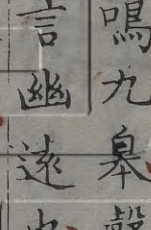 鳴九皋聲
言幽遠也